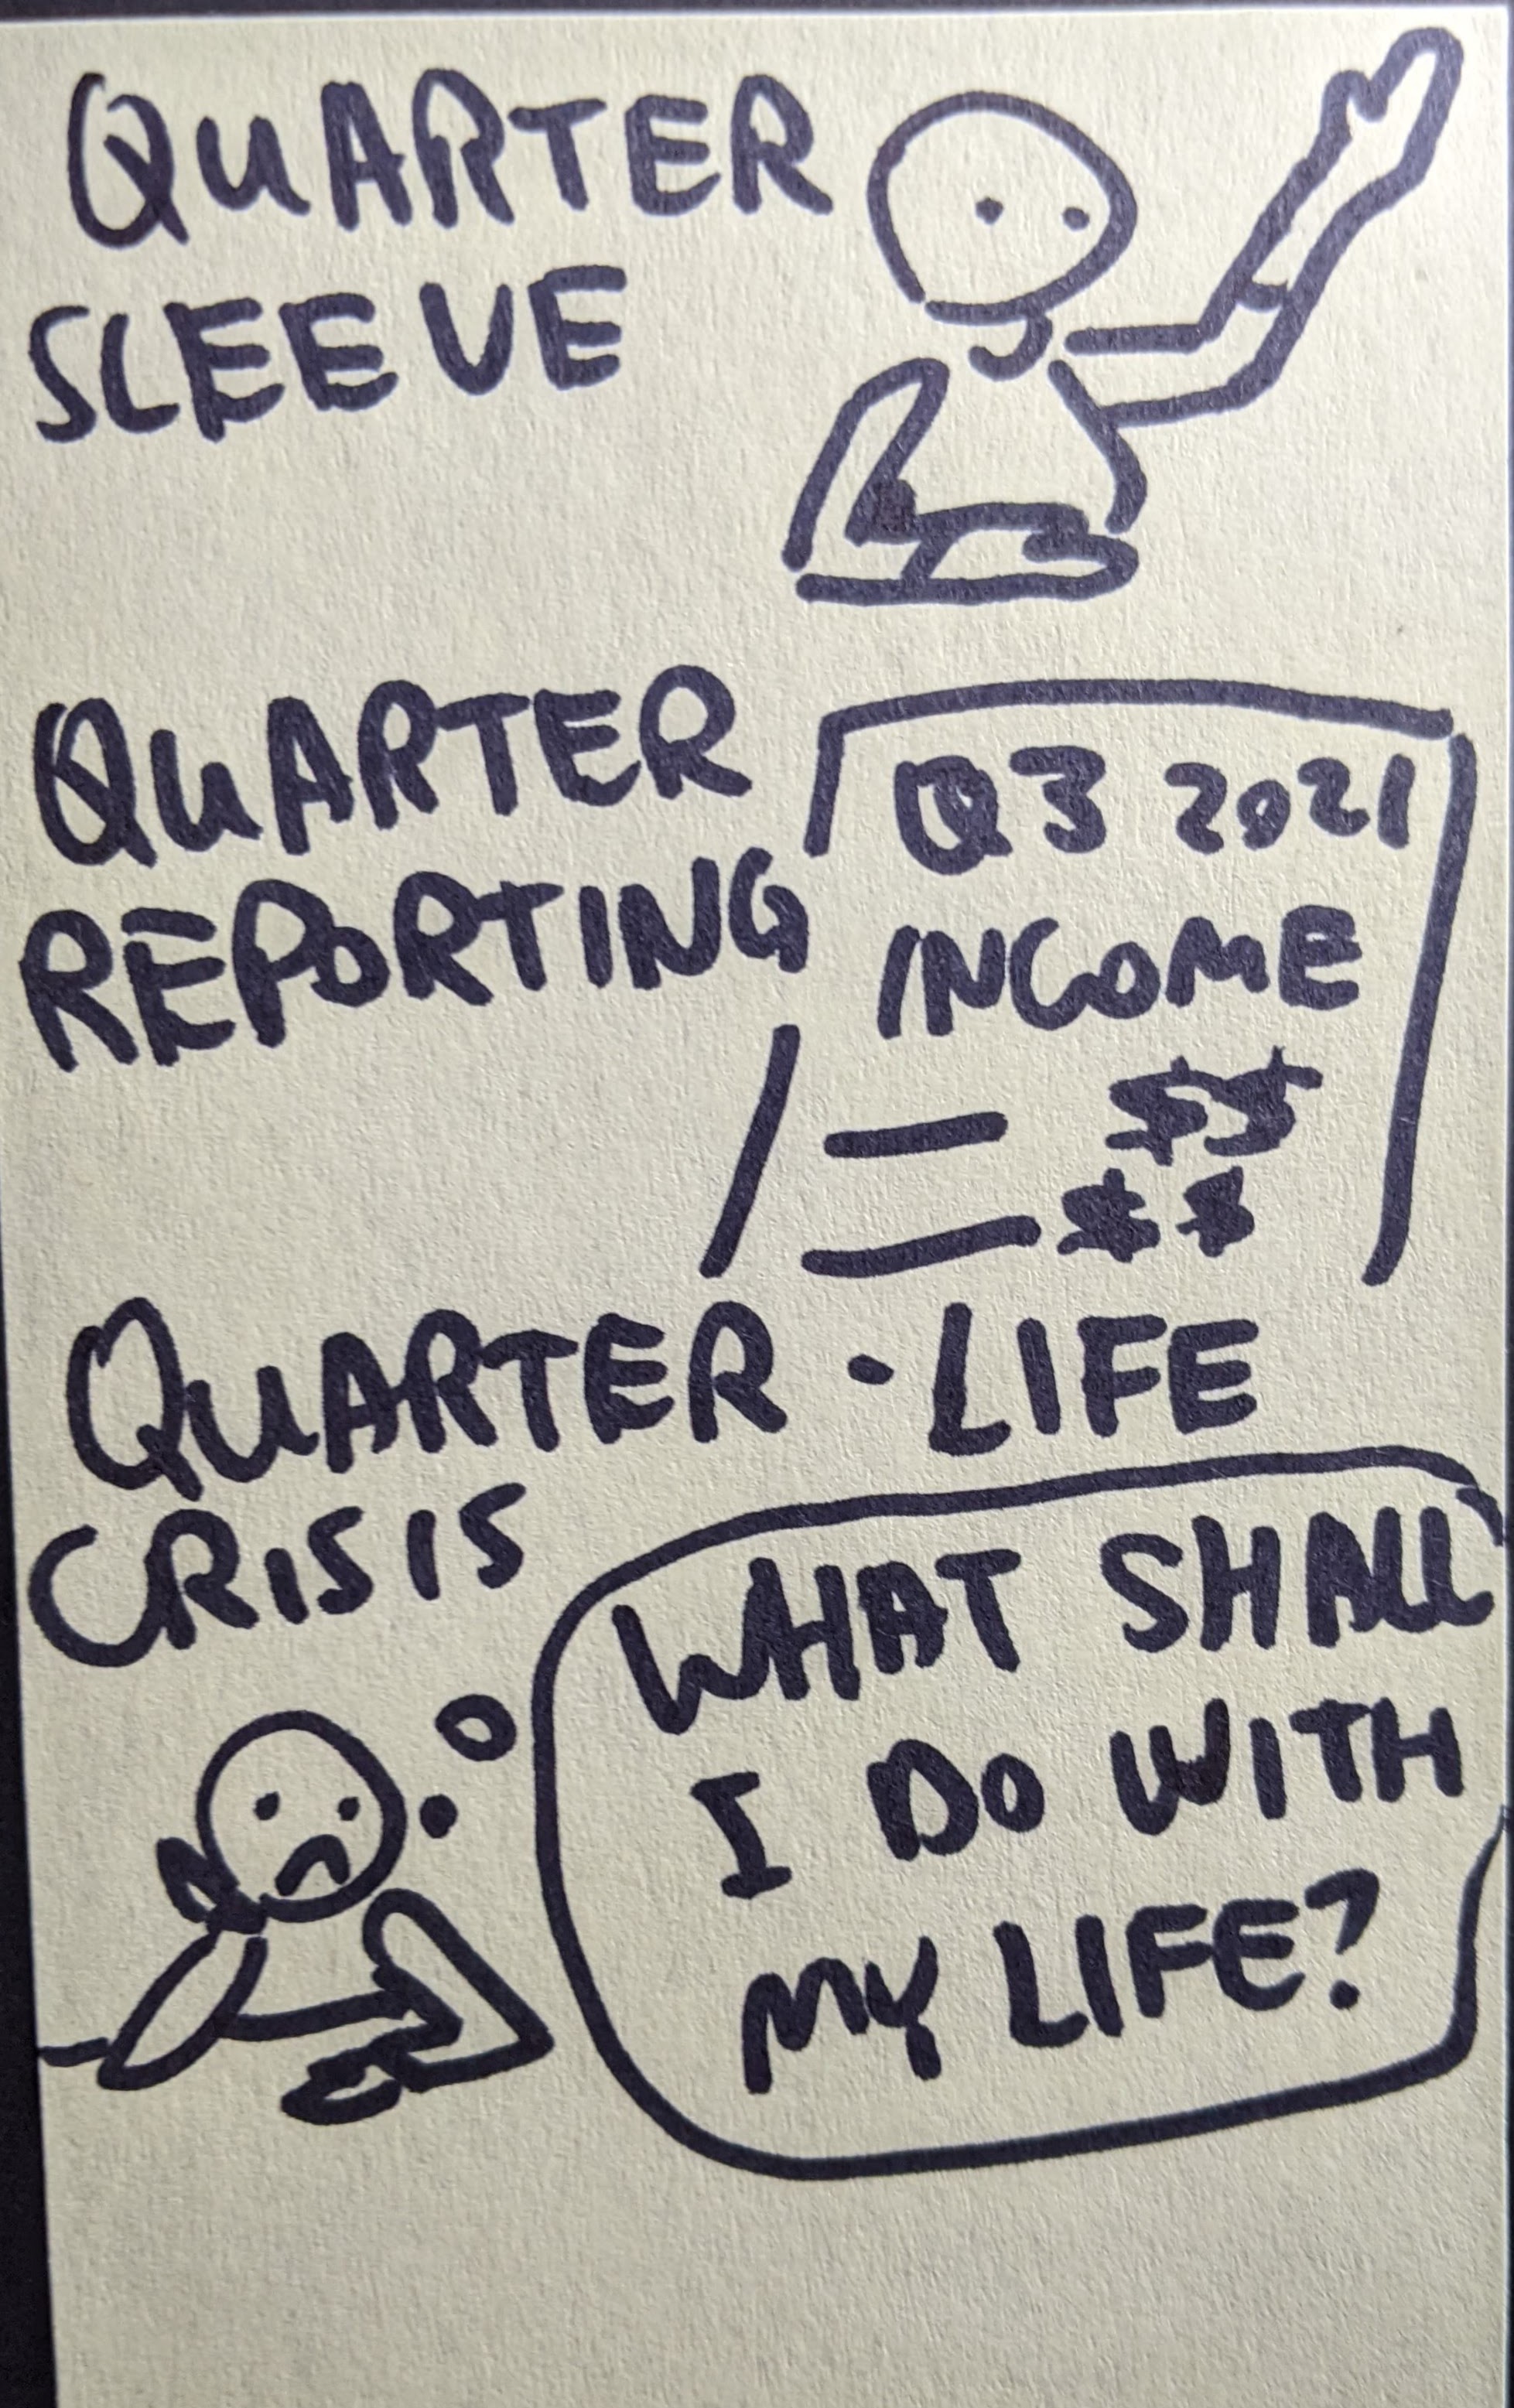 QUARTER
SLEEVE
QUARTER
REPORTING
Q3 2021
INCOME
$$
$$
QUARTER-LIFE
CRISIS
WHAT SHALL
I DO WITH
MY LIFE?